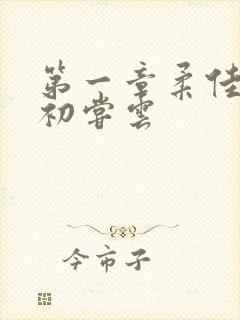 第一章柔佳
初尝云
今市子